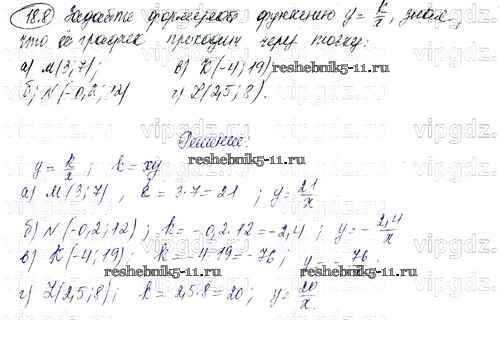 18.8 Задайте формулой функцию y = k/x, зная,
что её график проходит через точку:
а) M(3; 7); в) K(-4; 19);
б) N(-0,2; 12) г) L(2,5; 8).
Решение:
y = k/x ; k = xy
а) M(3; 7) , k = 3·7 = 21 ; y = 21/x
б) N(-0,2; 12) ; k = -0,2·12 = -2,4 ; y = - 2,4/x
в) K(-4; 19) ; k = -4·19 = -76 ; y = - 76/x.
г) L(2,5; 8) ; k = 2,5·8 = 20 ; y = 20/x.
vipgdz.
reshebnik5-11.ru
reshebnik5-11.ru
reshebnik5-11.ru
reshebnik5-11.ru